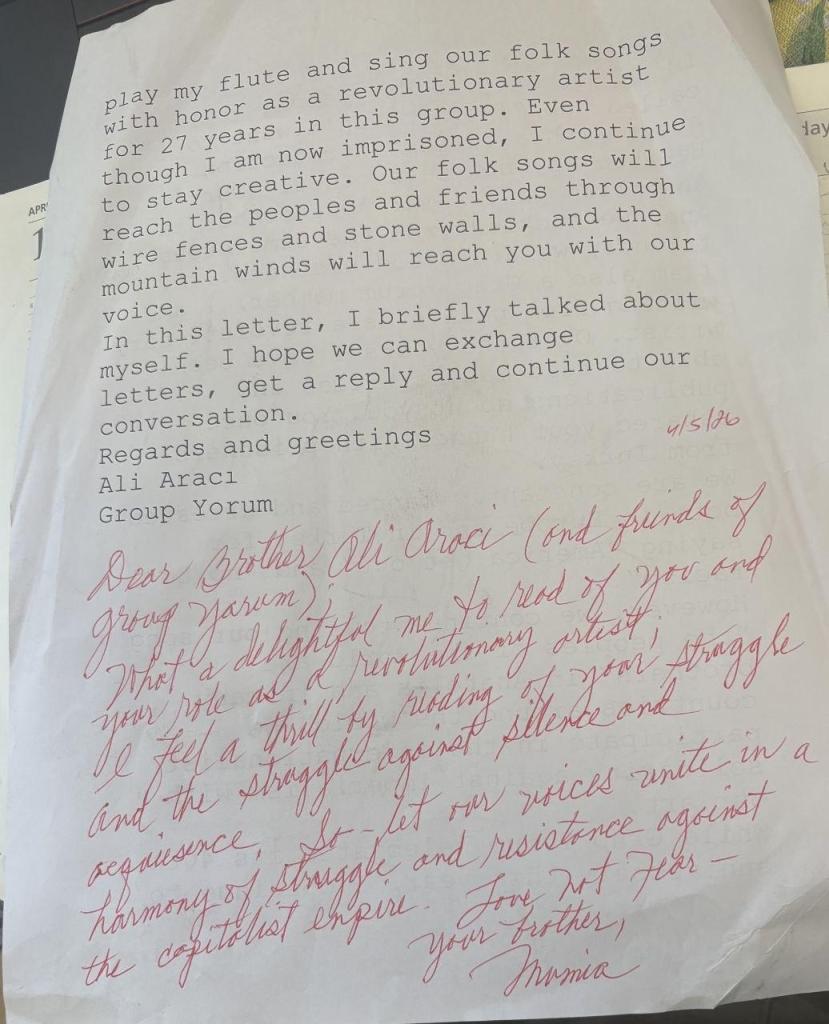 play my flute and sing our folk songs
with honor as a revolutionary artist
for 27 years in this group. Even
though I am now imprisoned, I continue
to stay creative. Our folk songs will
reach the peoples and friends through
wire fences and stone walls, and the
mountain winds will reach you with our
voice.
In this letter, I briefly talked about
myself. I hope we can exchange
letters, get a reply and continue our
conversation.
Regards and greetings
Ali Aracı
Group Yorum
4/5/26
Dear Brother Ali Araci (and friends of
group Yarum);
What a delightful me to read of you and
your role as a revolutionary artist;
I feel a thrill by reading of your struggle
and the struggle against silence and
acquiesence. So - let our voices unite in a
harmony of struggle and resistance against
the capitalist empire. Love Not Fear -
your brother,
Mumia
APR
1
day